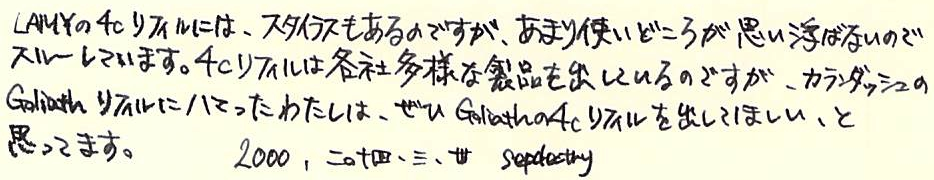 LAMYの4cリフィルには、スタイラスもあるのですが、あまり使いどころが思い浮ばないので
スルーしています。4cリフィルは各社多様な製品を出しているのですが、カランダッシュの
Goliathリフィルにハマったわたしは、ぜひGoliathの4cリフィルを出してほしい、と
思ってます。 2000, 二〇十四、三、廿